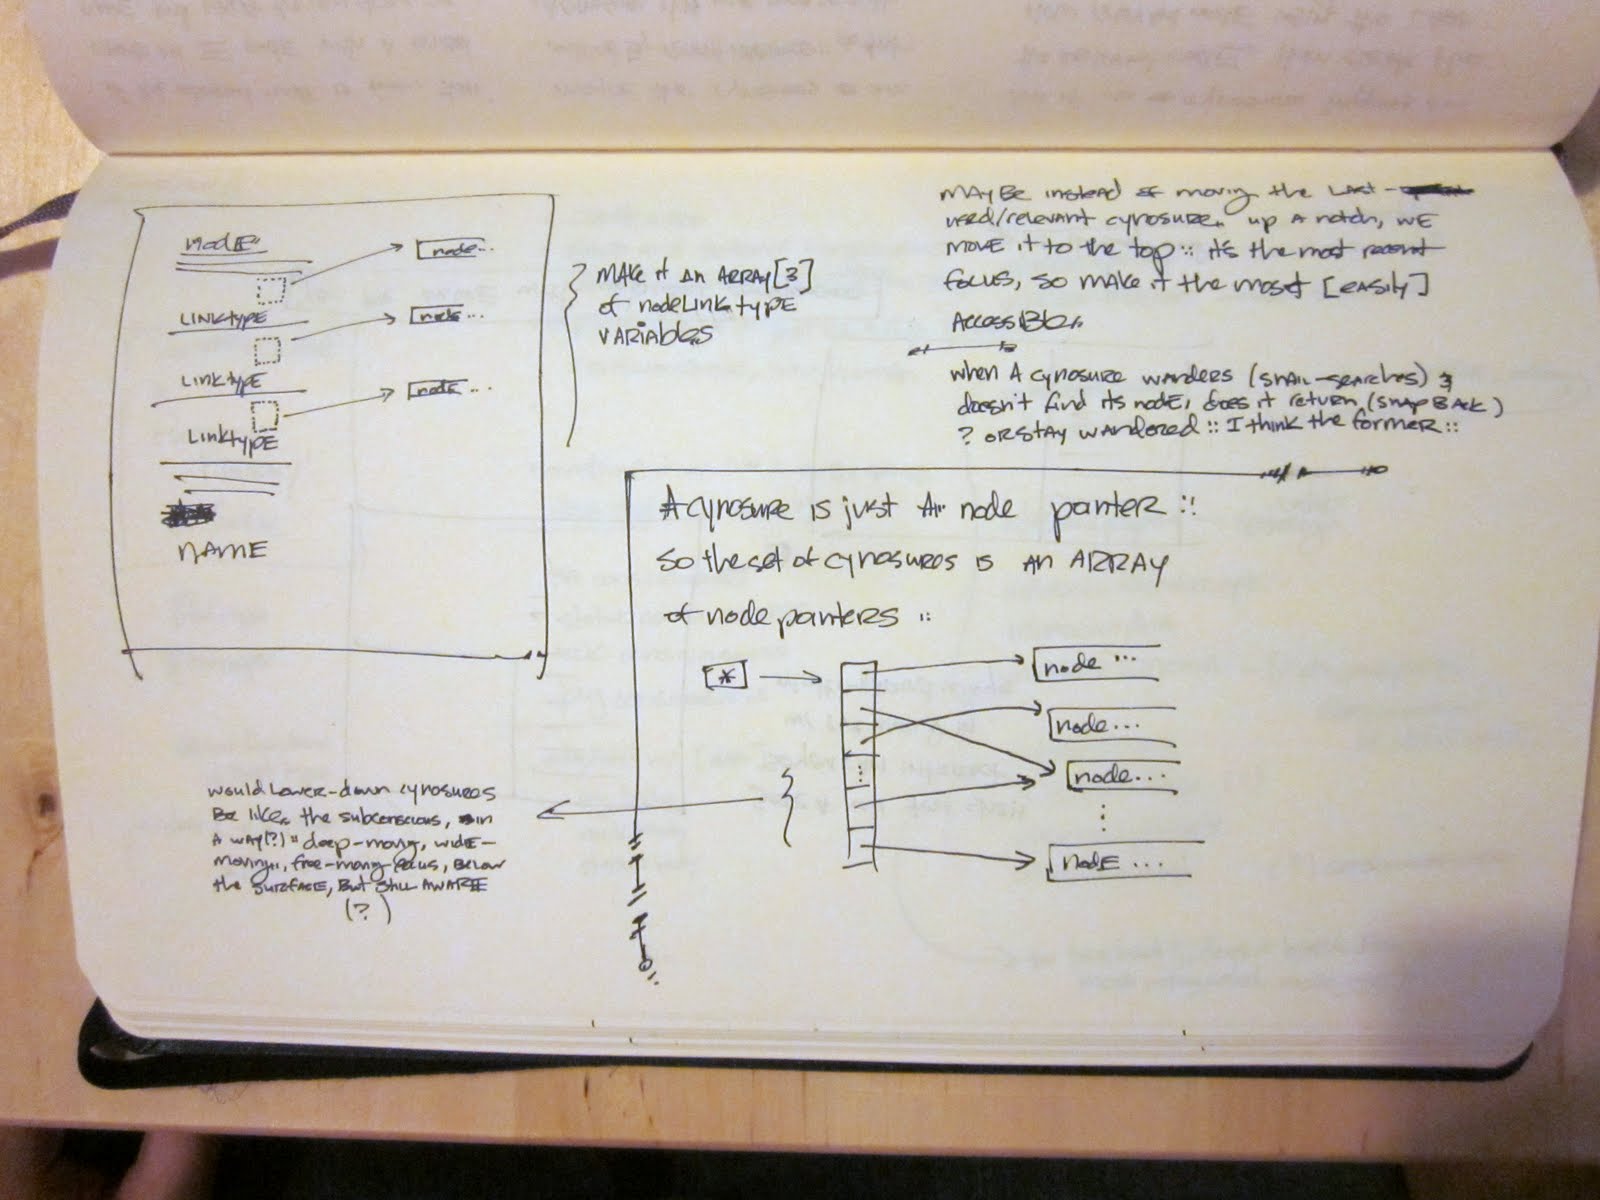 NODE::
node...
LINKTYPE
node...
LINKTYPE
node...
LINKTYPE
NAME
MAKE it AN ARRAY[3]
of nodeLINKtyPE
VARIABLES
MAYBE instead of moving the LAST-
used/relevant cynosure:: up A notch, WE
MOVE it to the top :: it's the most recent
focus, so MAKE it the most [EASILY]
ACCESSIBLE::
when A cynosure wanders (snail-searches) &
doesn't find its node, does it return (SNAP BACK)
? OR STAY WANDERED :: I think the former ::
A cynosure is just A node pointer ::
So the set of cynosures is AN ARRAY
of node pointers ::
*
node ...
node...
node...
node ...
would Lower-down cynosures
BE like the subconscious, in
A WAY(?) :: deep-moving, WIDE-
moving, free-moving focus, BELOW
the SURFACE, BUT still AWARE
(?)